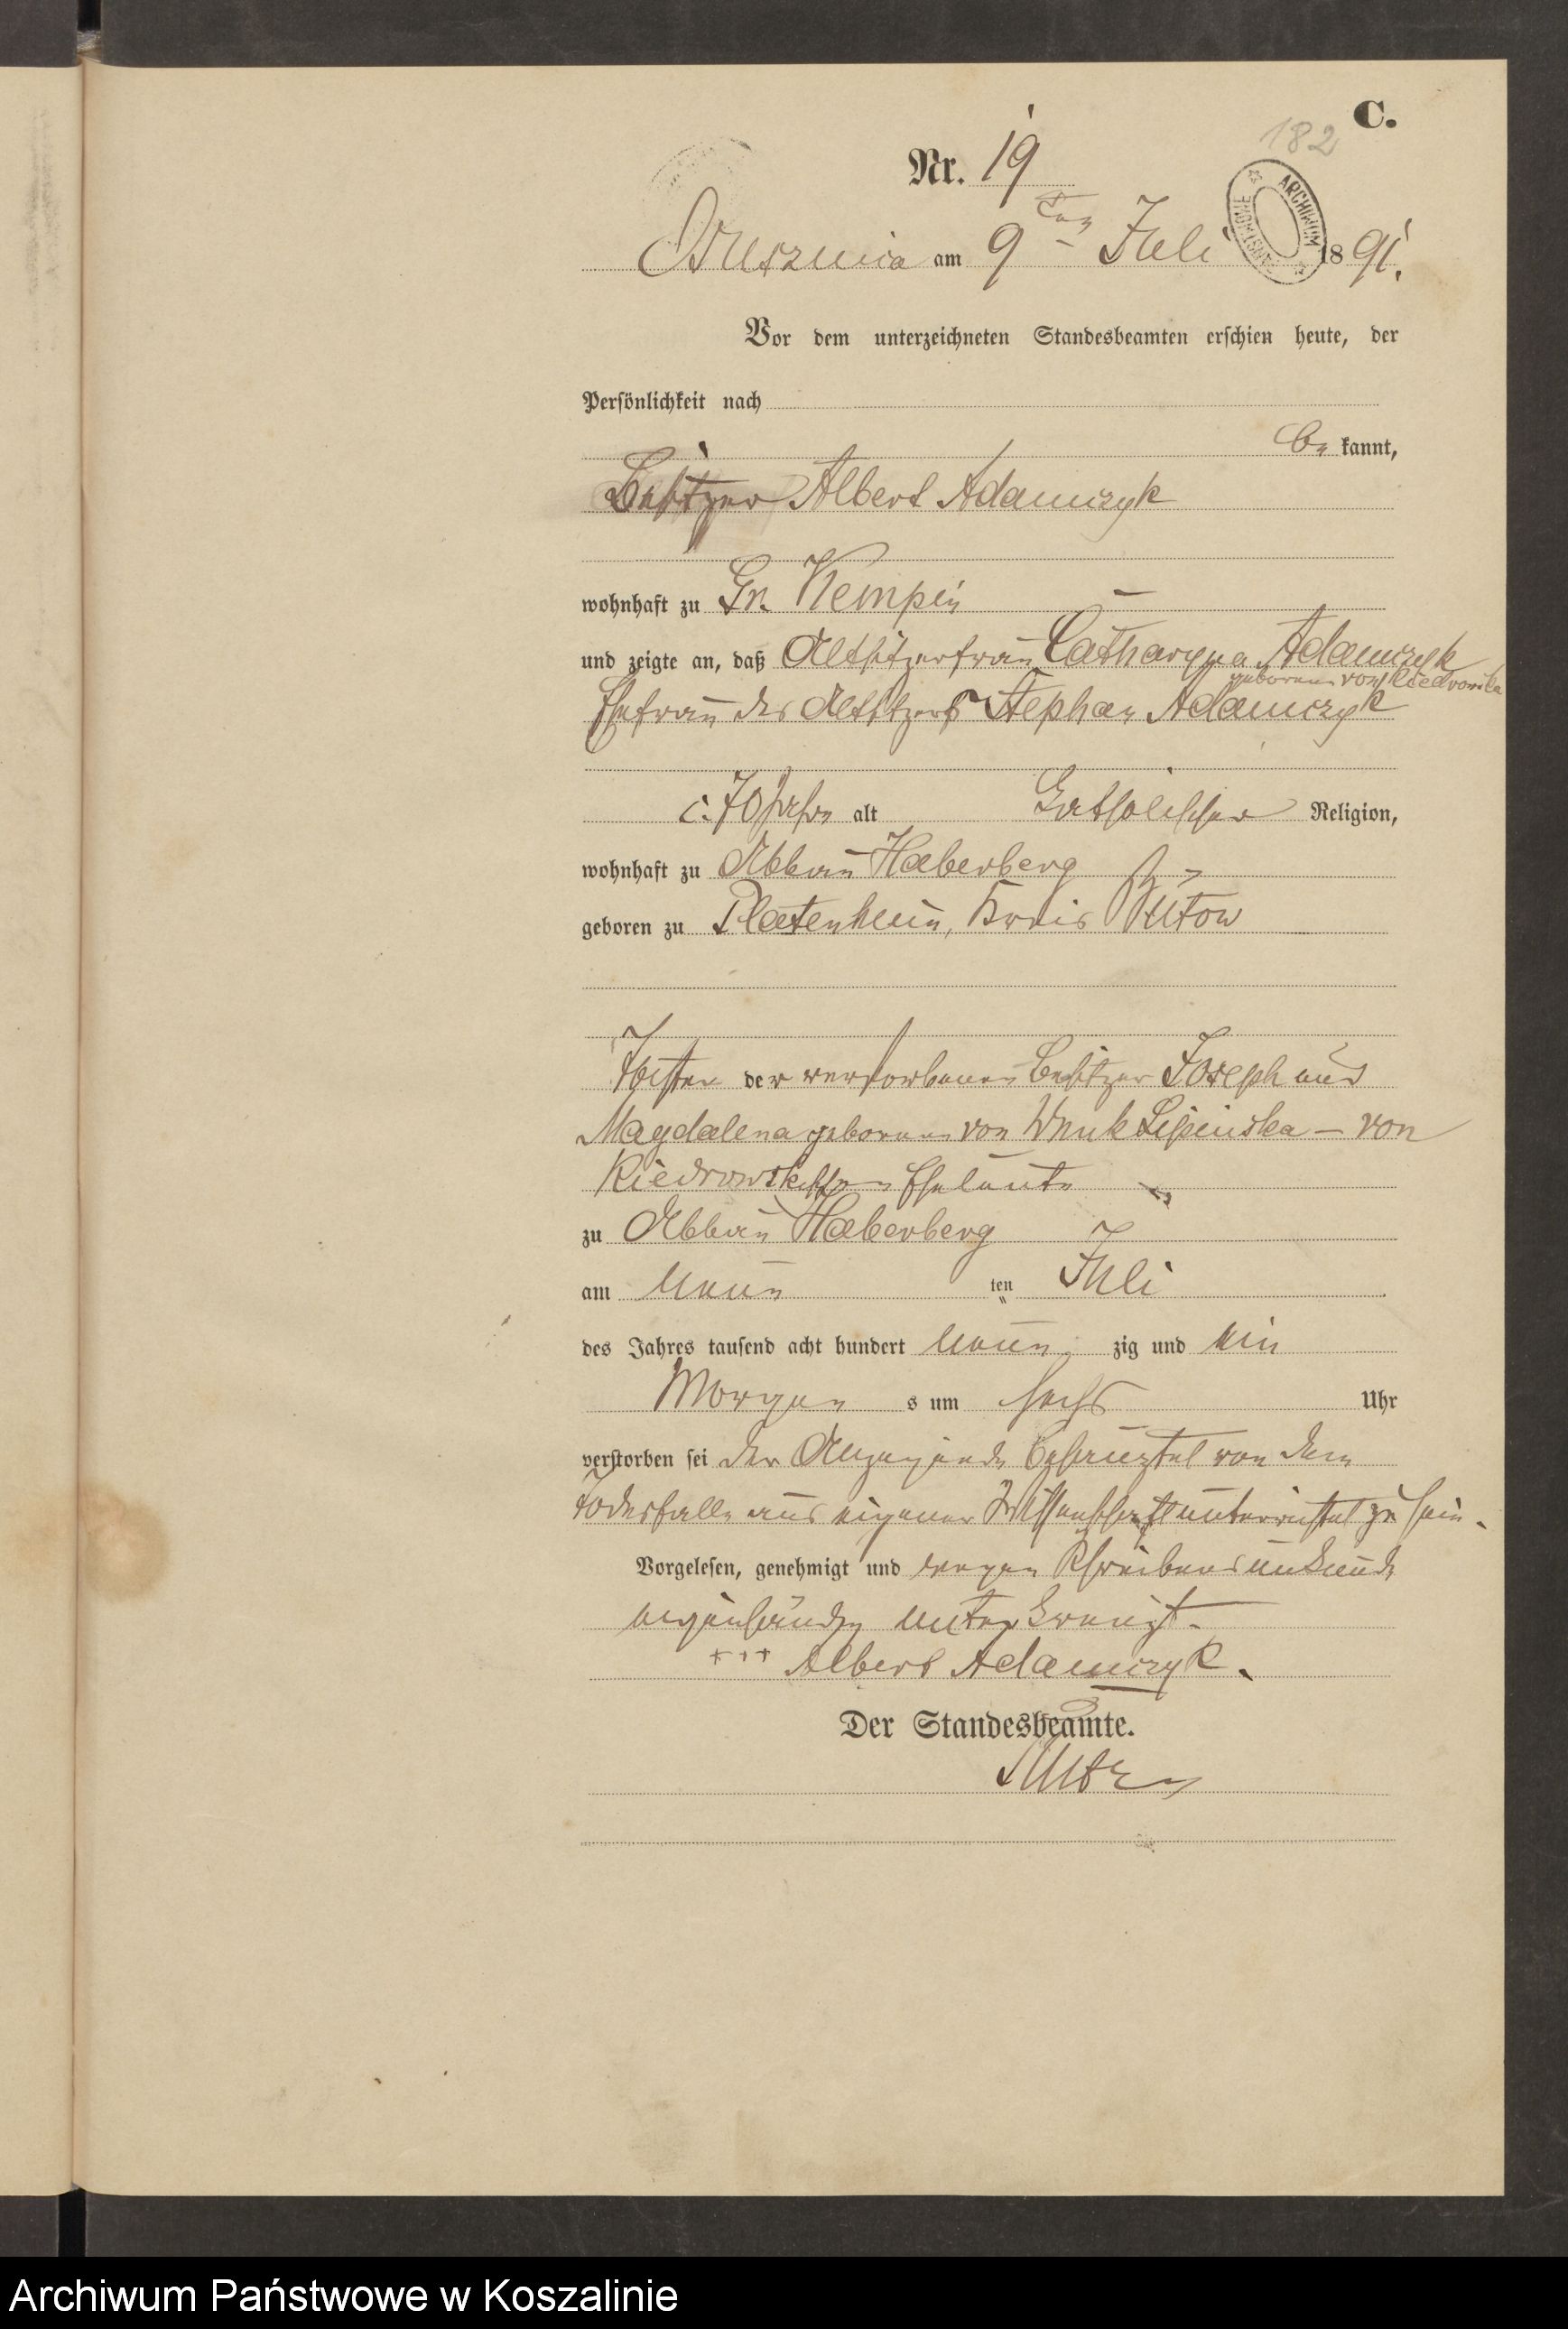 C.
182
Nr. 19
ARCHIWUM PAŃSTWOWE
am 9ten Juli 1891.
Vor dem unterzeichneten Standesbeamten erschien heute, der
Persönlichkeit nach
be kannt,
Besitzer Albert Adamczyk
wohnhaft zu Gr. Kempin
und zeigte an, daß Altsitzerfrau Catharyna Adamczyk
geborene von Kiedrowska
Ehefrau des Altsitzers Stephan Adamczyk
c. 70 Jahre alt katholischer Religion,
wohnhaft zu Abbau Haberberg
geboren zu Platenheim, Kreis Bütow
Tochter der verstorbenen Besitzer Joseph und
Magdalena geborenen von Wnuk Lipinska – von
Kiedrowskischen Eheleute
zu Abbau Haberberg
am neun ten Juli
des Jahres tausend acht hundert neun zig und ein
Morgen s um sechs Uhr
verstorben sei der Anzeigende von dem
Todesfalle aus eigener Wissenschaft unterrichtet zu sein.
Vorgelesen, genehmigt und wegen Schreibensunkunde
unterkreuzt.
+++ Albert Adamczyk.
Der Standesbeamte.
Archiwum Państwowe w Koszalinie